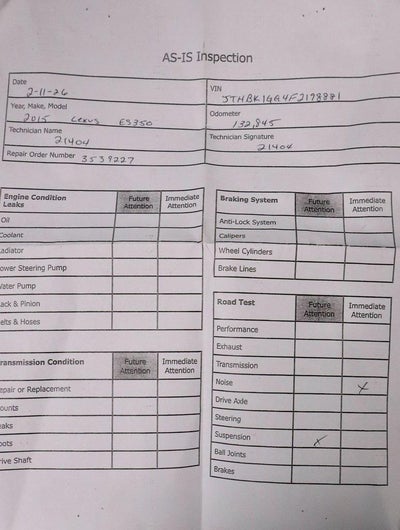 AS-IS Inspection
Date
2-11-26
VIN
JTHBK1GG4F2178881
Year, Make, Model
2015 Lexus ES350
Odometer
132,845
Technician Name
21404
Technician Signature
21404
Repair Order Number 3539227
Engine Condition Leaks Future Attention Immediate Attention
Oil
Coolant
adiator
ower Steering Pump
Vater Pump
ack & Pinion
elts & Hoses
Braking System Future Attention Immediate Attention
Anti-Lock System
Calipers
Wheel Cylinders
Brake Lines
ransmission Condition Future Attention Immediate Attention
epair or Replacement
ounts
eaks
oots
rive Shaft
Road Test Future Attention Immediate Attention
Performance
Exhaust
Transmission
Noise X
Drive Axle
Steering
Suspension X
Ball Joints
Brakes